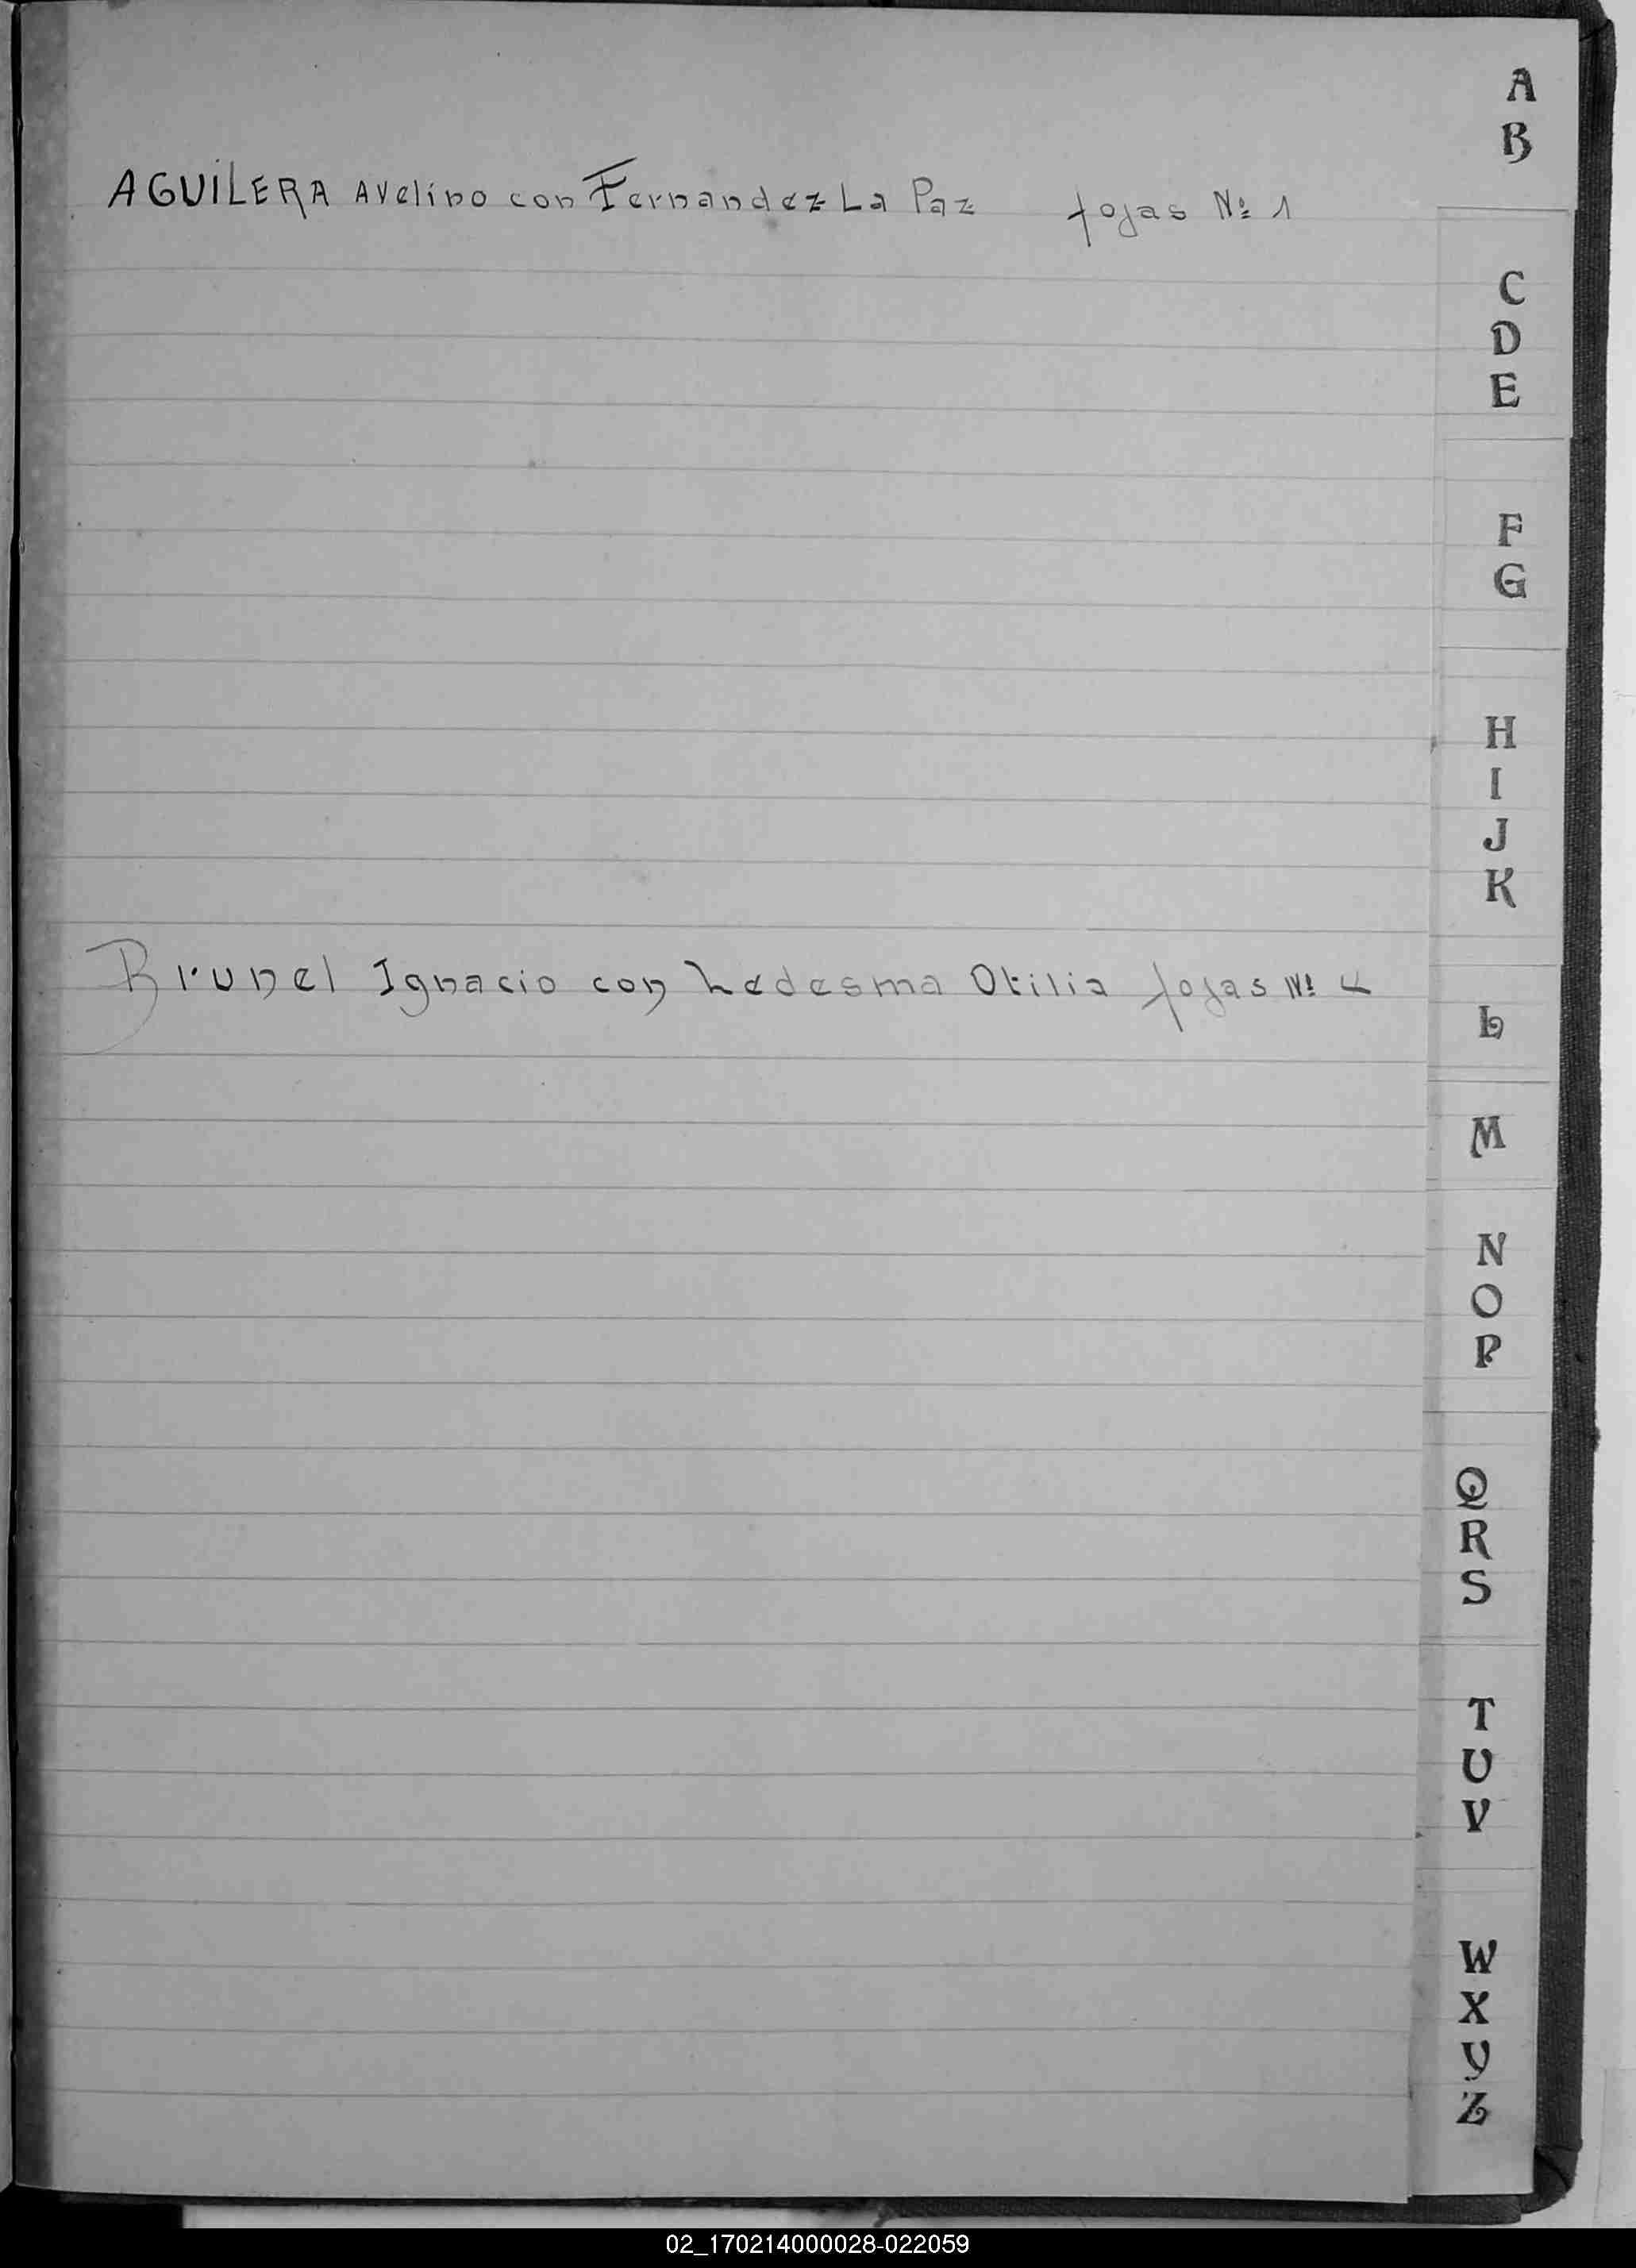 A
B
AGUILERA Avelino con Fernandez La Paz fojas Nº 1
C
D
E
F
G
H
I
J
K
Brunel Ignacio con Ledesma Otilia fojas Nº 4
L
M
N
O
P
Q
R
S
T
U
V
W
X
Y
Z
02_170214000028-022059